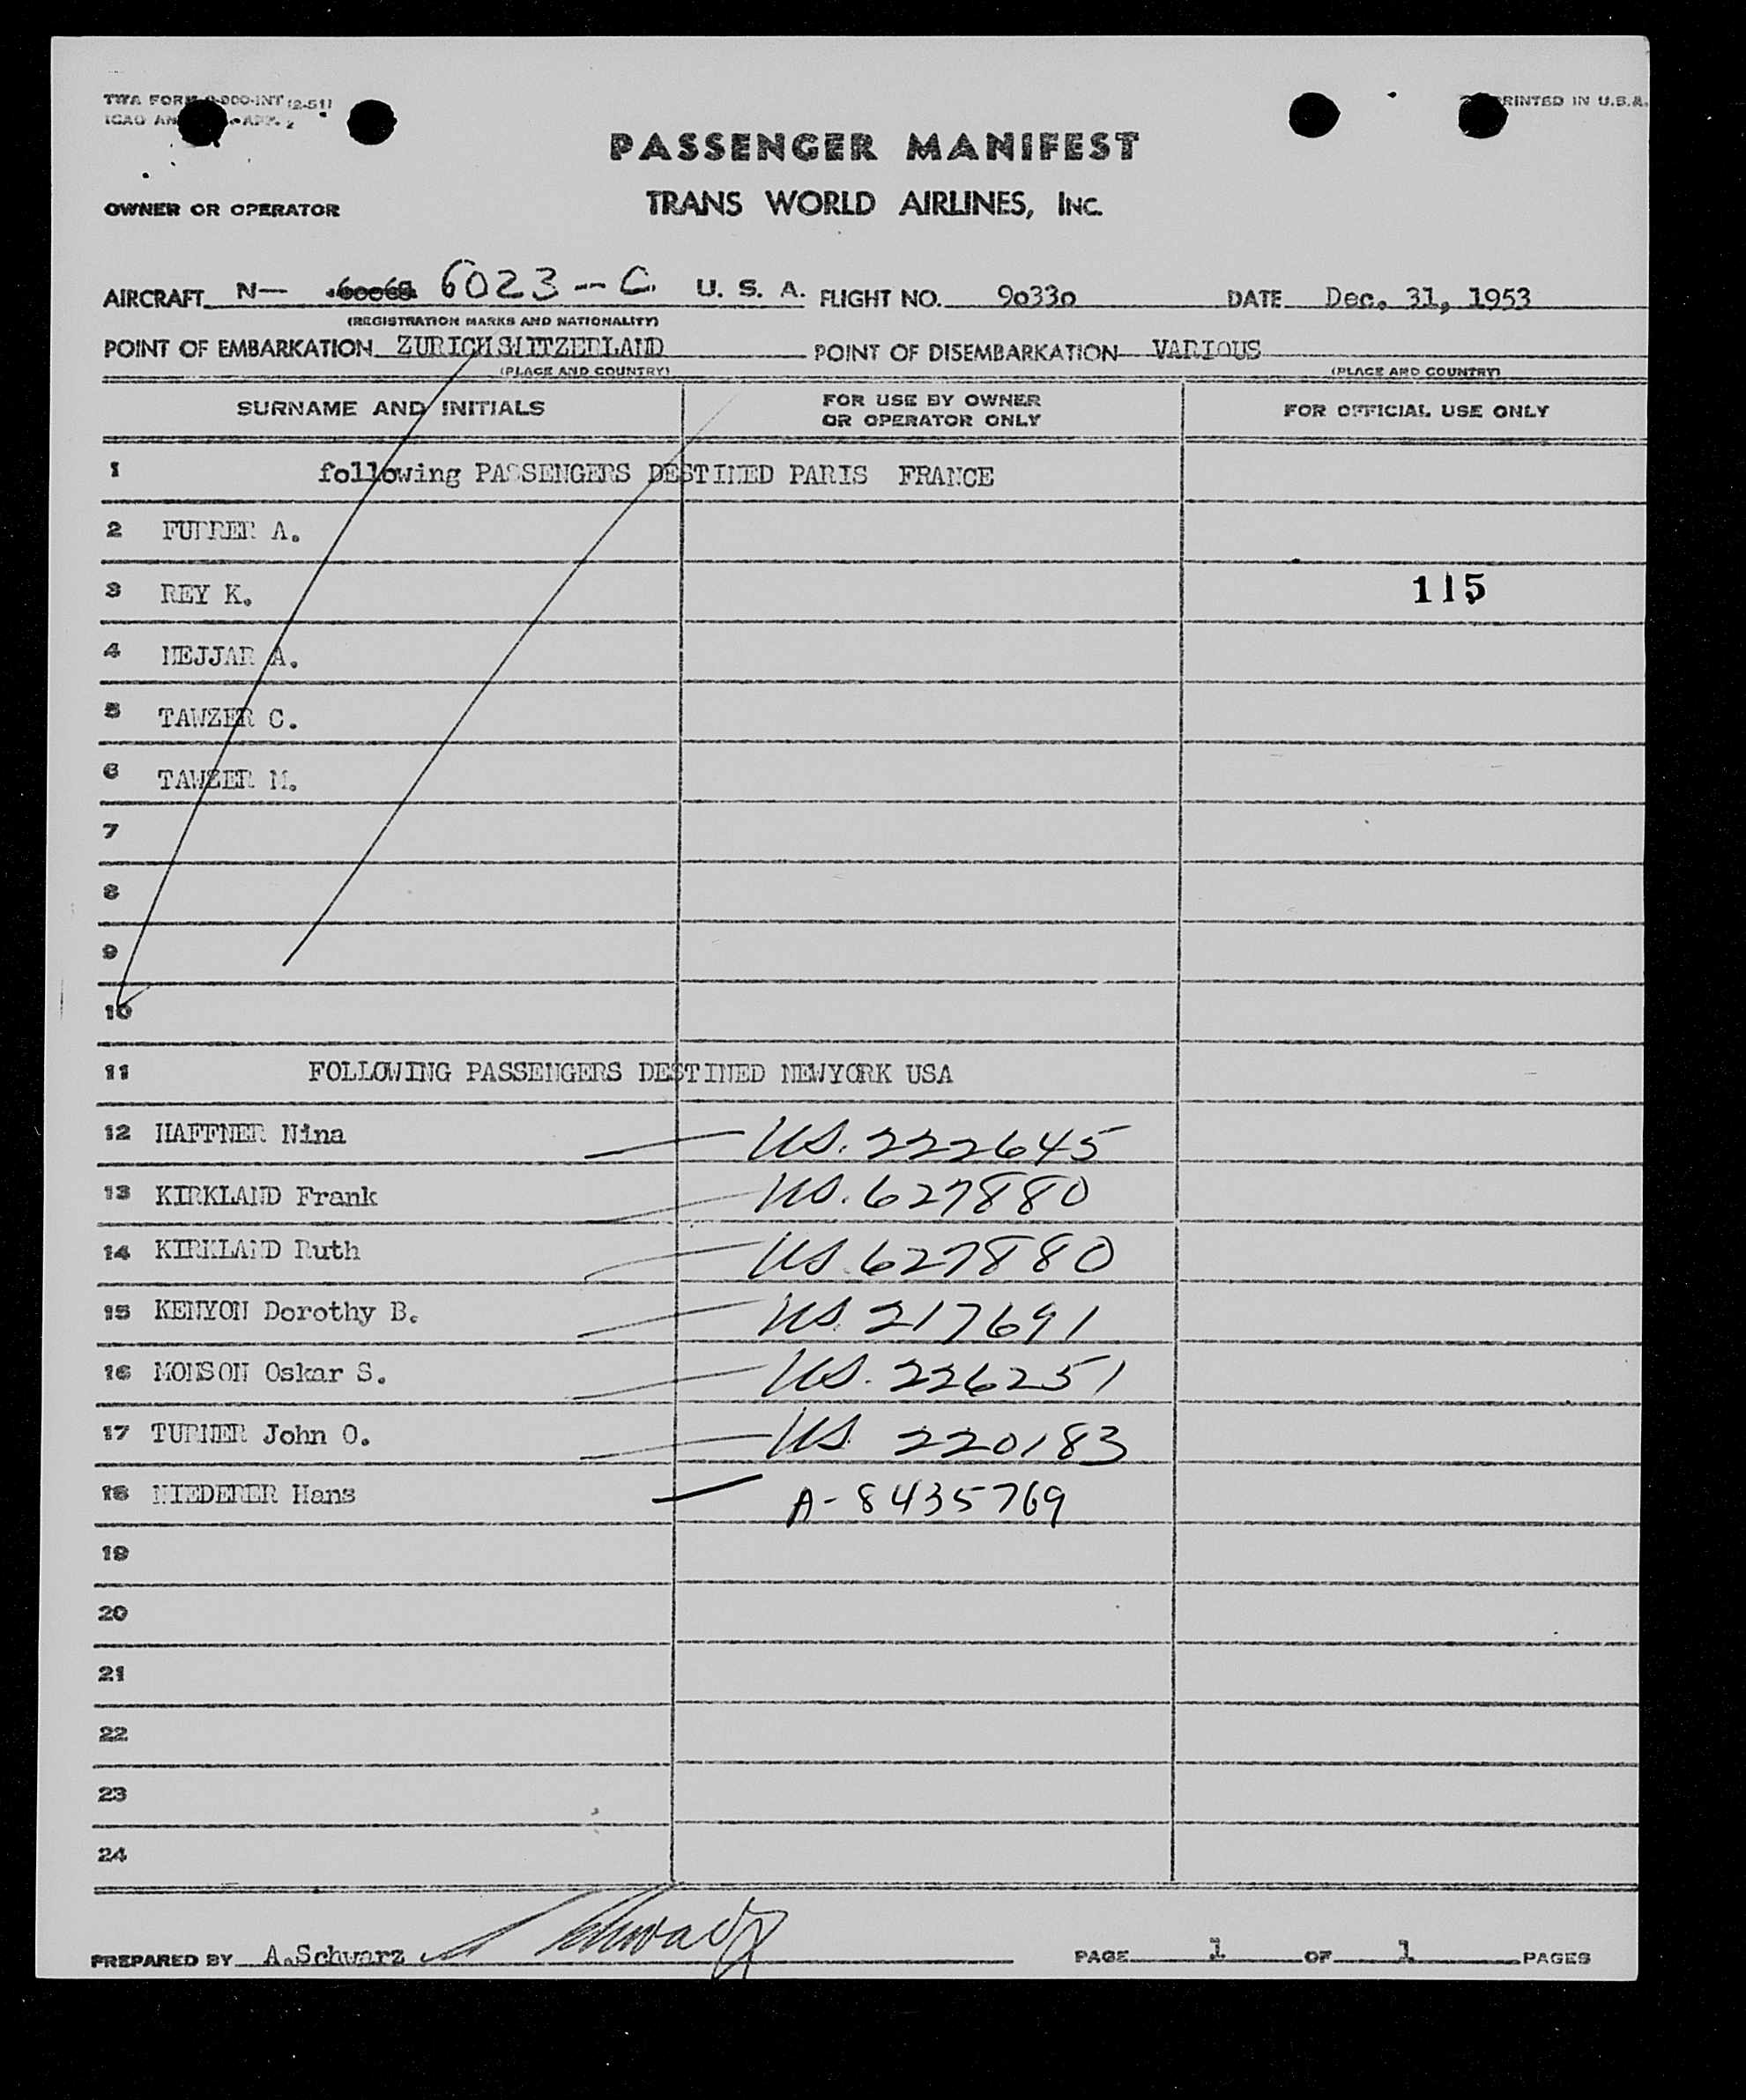 TWA FORM O-DOO-INT (2-51)
ICAO AN APP. 2
PRINTED IN U.S.A.
PASSENGER MANIFEST
TRANS WORLD AIRLINES, INC.
OWNER OR OPERATOR
AIRCRAFT N- 6023--C. U. S. A. FLIGHT NO. 90330 DATE Dec. 31, 1953
(REGISTRATION MARKS AND NATIONALITY)
POINT OF EMBARKATION ZURICH SWITZERLAND POINT OF DISEMBARKATION VARIOUS
(PLACE AND COUNTRY) (PLACE AND COUNTRY)
SURNAME AND INITIALS FOR USE BY OWNER OR OPERATOR ONLY FOR OFFICIAL USE ONLY
1 following PASSENGERS DESTINED PARIS FRANCE
2 FURRER A.
3 REY K. 115
4 NEJJAR A.
5 TAWZER C.
6 TAWZER M.
7
8
9
10
11 FOLLOWING PASSENGERS DESTINED NEWYORK USA
12 HAFFNER Nina US. 222645
13 KIRKLAND Frank US. 627880
14 KIRKLAND Ruth US. 627880
15 KENYON Dorothy B. US. 217691
16 MONSON Oskar S. US. 226251
17 TURNER John O. US 220183
18 NIEDERER Hans A-8435769
19
20
21
22
23
24
PREPARED BY A.Schwarz Schwarz PAGE 1 OF 1 PAGES